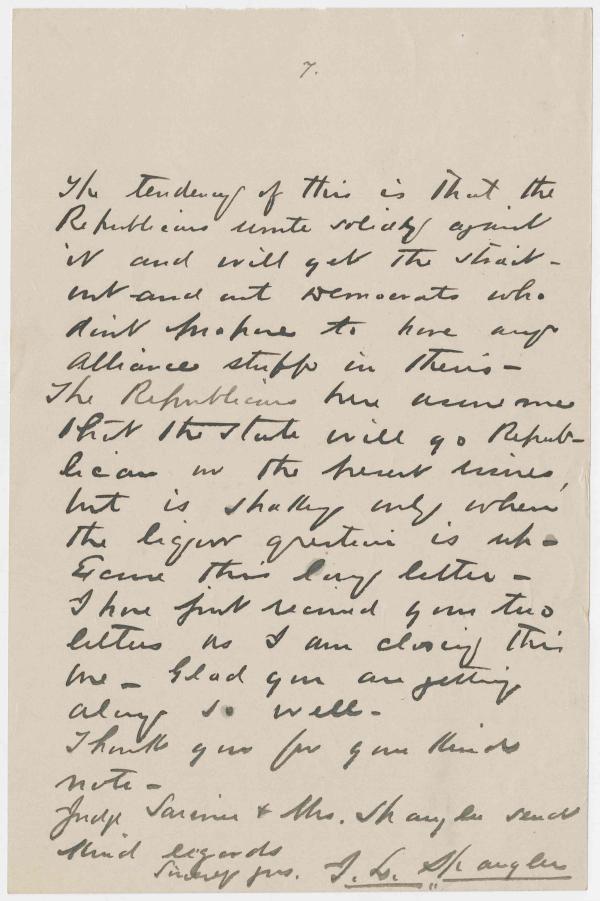 7.
The tendency of this is that the
Republicans unite solidly against
it and will get the strait-
out-and out Democrats who
don't propose to have any
Alliance stuff in theirs -
The Republicans here assure me
that the State will go Repub-
lican on the present issues,
but is shaky only when
the liquor question is up -
Excuse this long letter -
I have just received your two
letters as I am closing this
one - Glad you are getting
along so well -
Thank you for your kind
note -
Judge & Mrs. Spangler send
kind regards
Sincerely yrs. J. L. Spangler